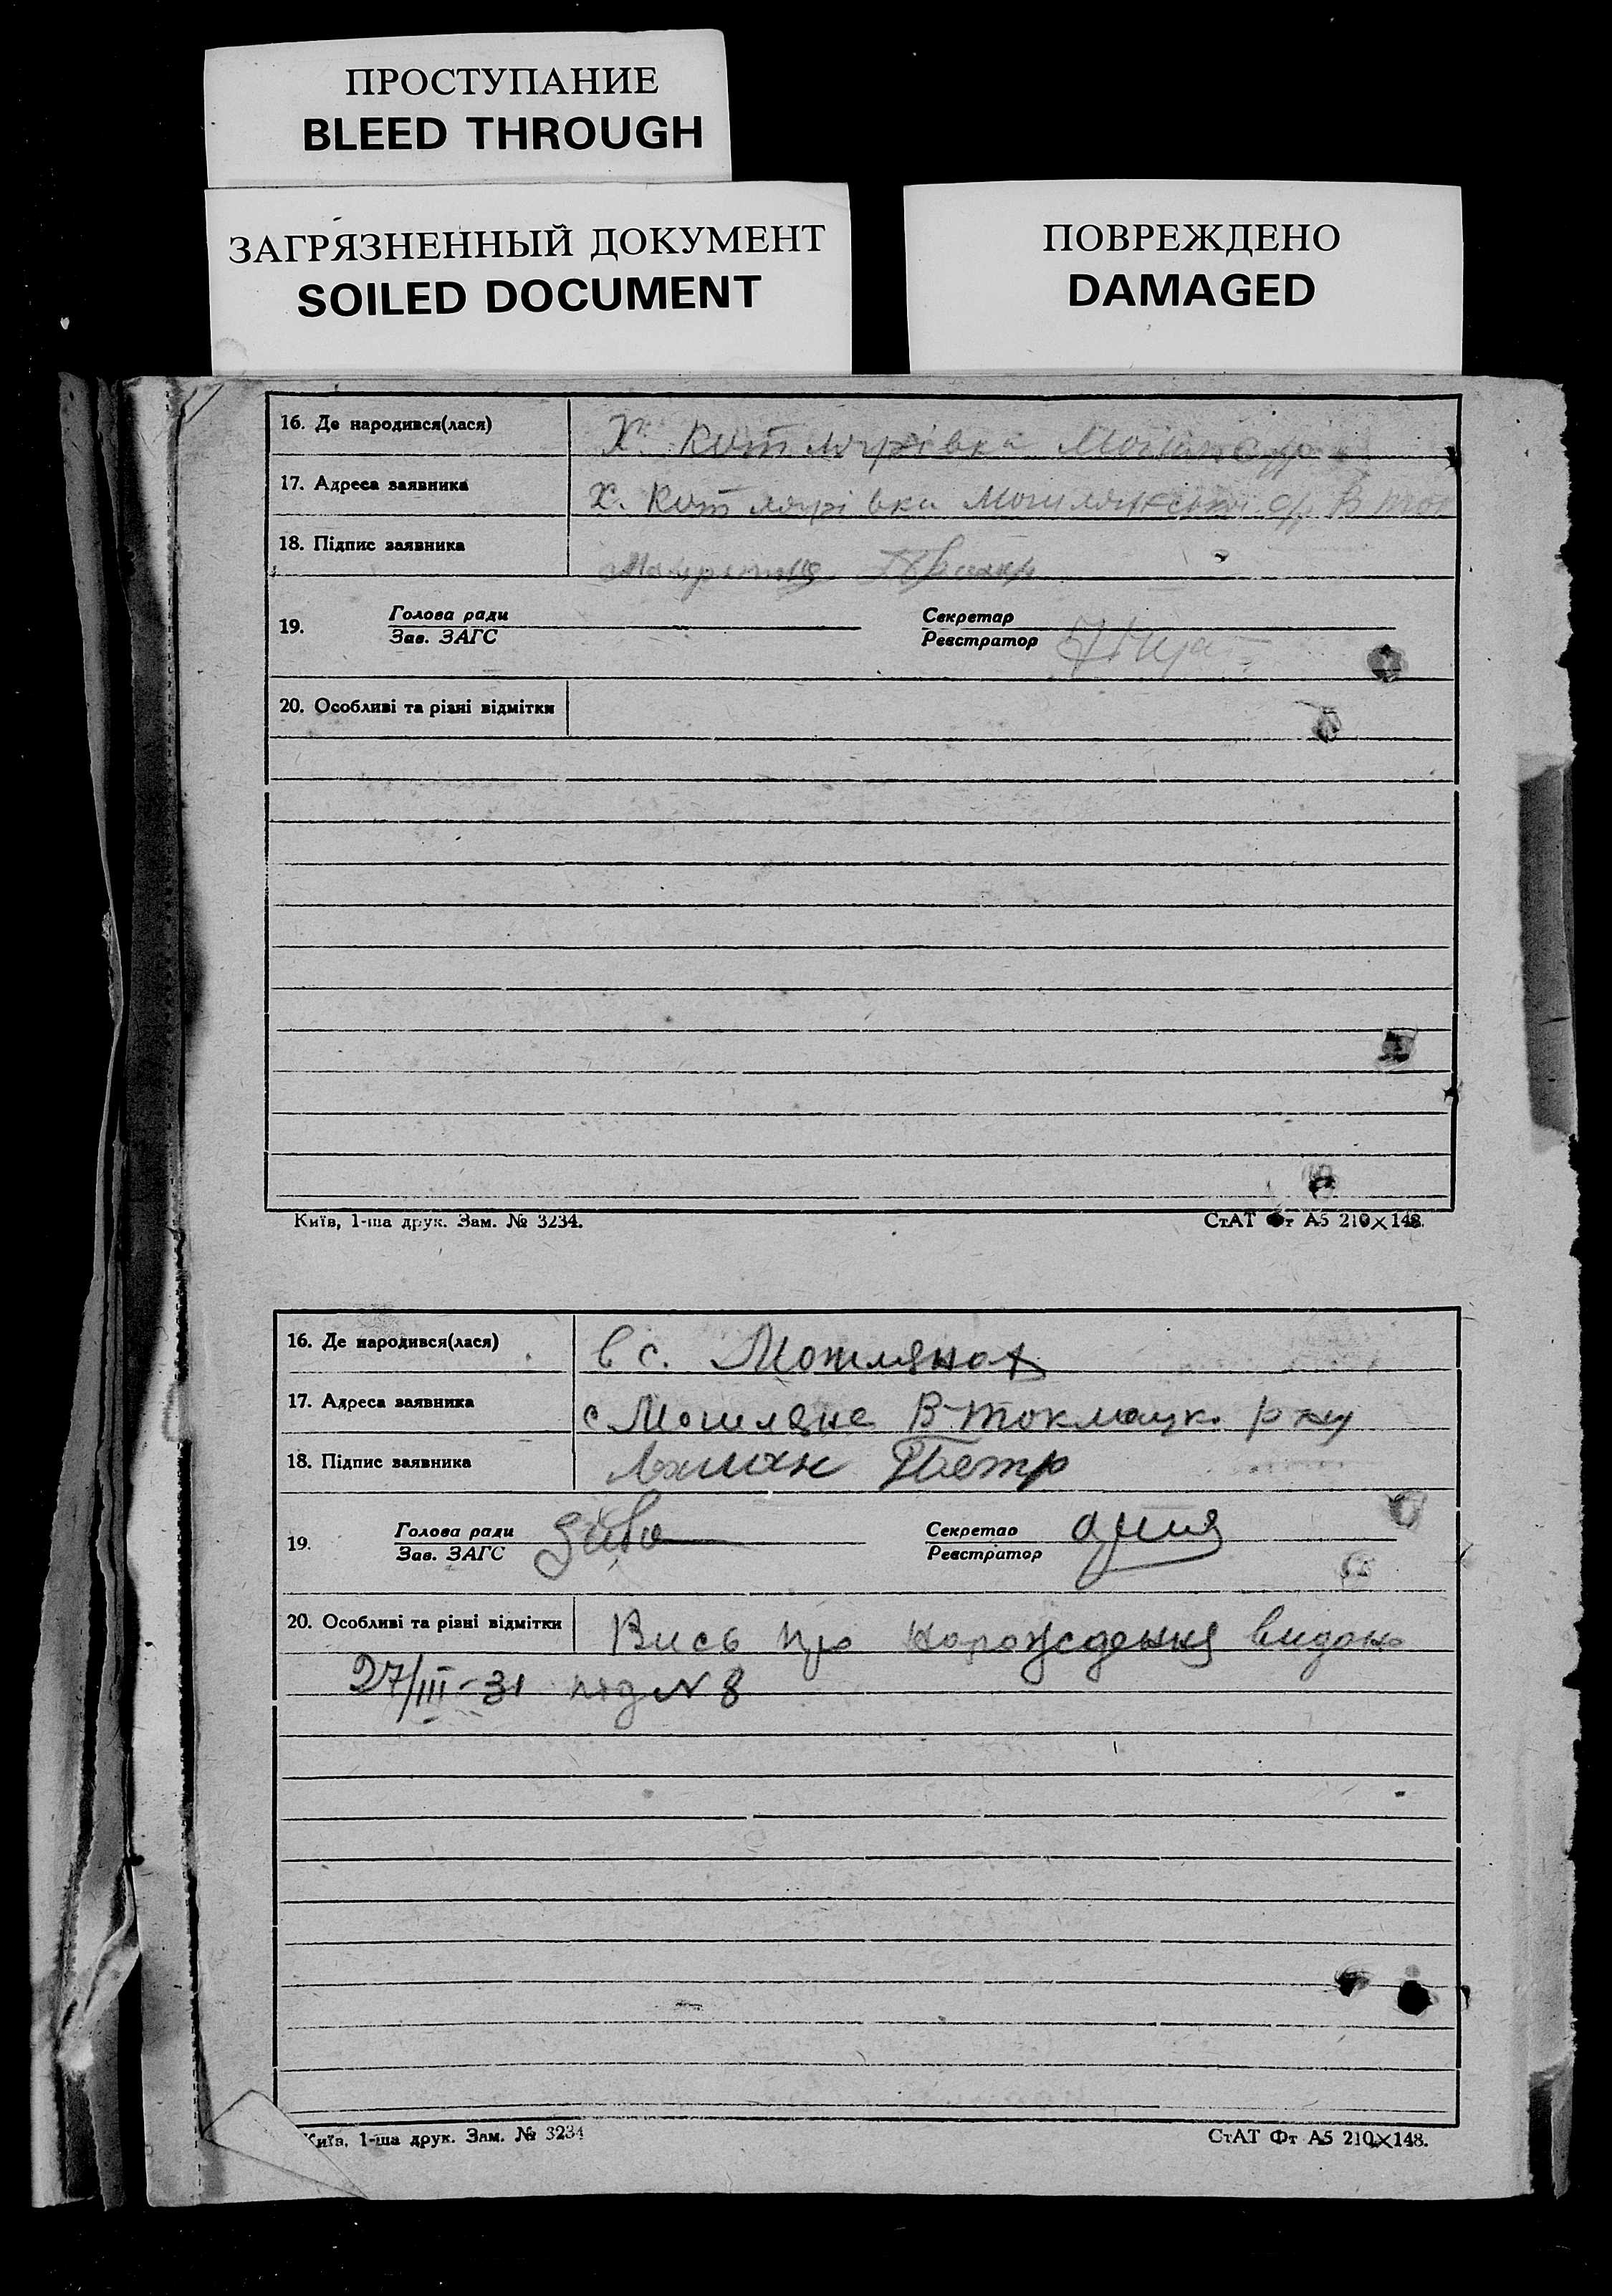 ПРОСТУПАНИЕ
BLEED THROUGH
ЗАГРЯЗНЕННЫЙ ДОКУМЕНТ
SOILED DOCUMENT
ПОВРЕЖДЕНО
DAMAGED
16. Де народився(лася) Х. Котлярівка
17. Адреса заявника Х. Котлярівка Могилянської с/р В Ток
18. Підпис заявника
19. Голова ради Секретар
Зав. ЗАГС Реєстратор
20. Особливі та різні відмітки
Київ, 1-ша друк. Зам. № 3234. СтАТ Фт А5 210×148.
16. Де народився(лася) в с. Могилянах
17. Адреса заявника с Могиляне В-Токмацк. р-ну
18. Підпис заявника Петр
19. Голова ради Секретар
Зав. ЗАГС Реєстратор
20. Особливі та різні відмітки Вись про нарождения видано
27/III-31 під № 8
Київ, 1-ша друк. Зам. № 3234 СтАТ Фт А5 210×148.